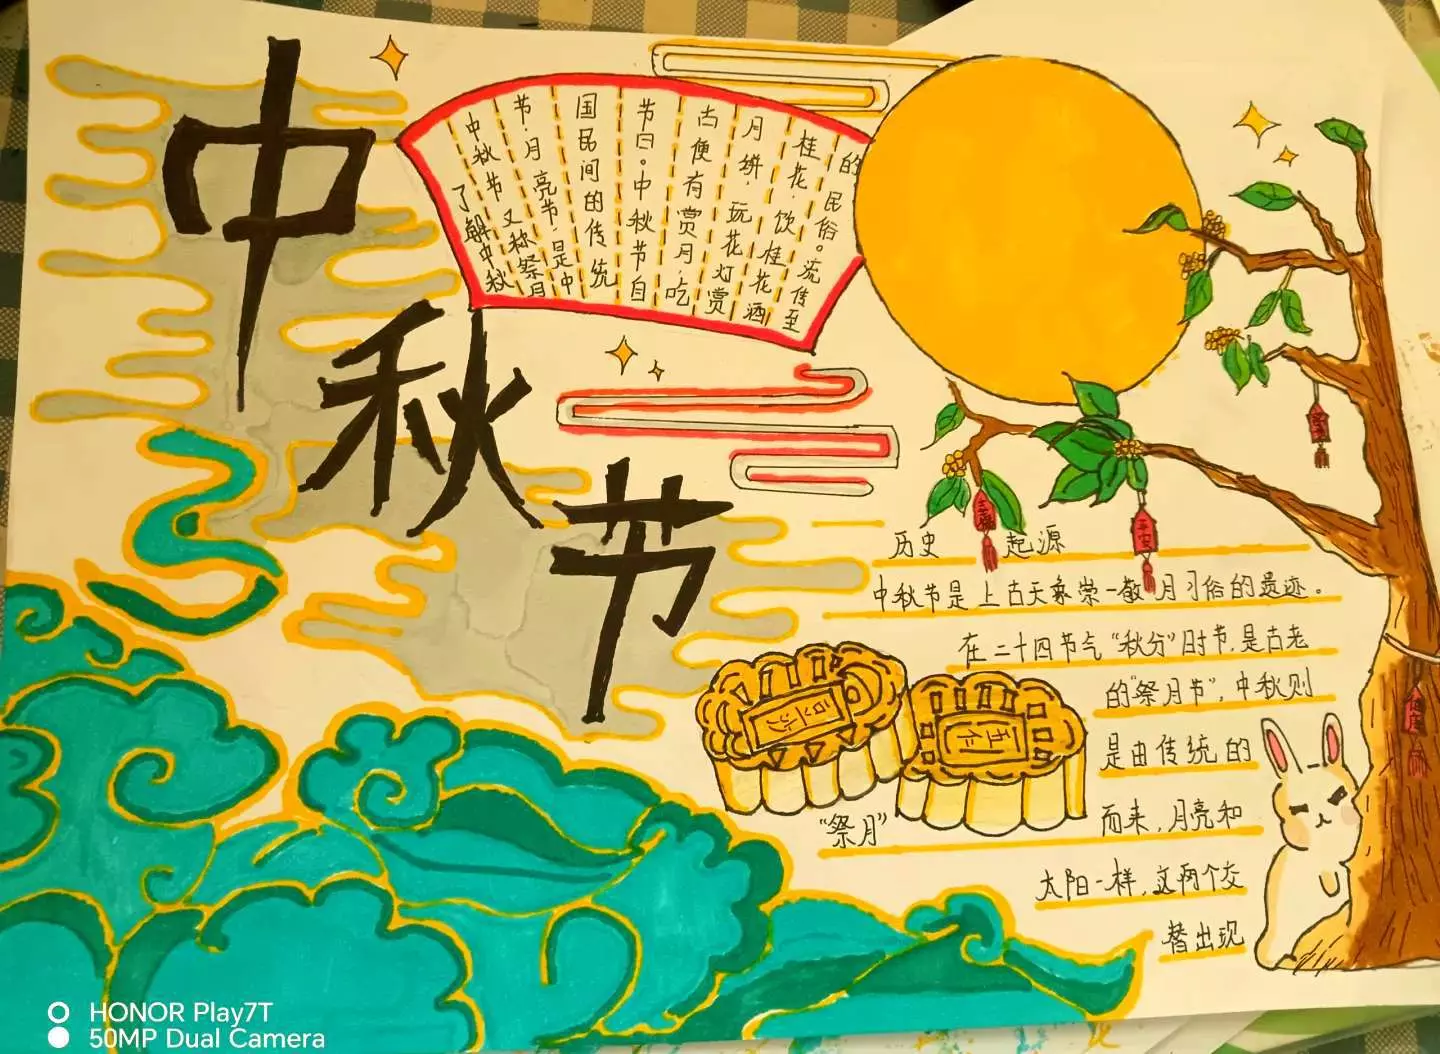 中秋节
了解中秋
中秋节又称祭月
节·月亮节·是中
国民间的传统
节日。中秋节自
古便有赏月,吃
月饼,玩花灯赏
桂花,饮桂花酒
的民俗。流传至
历史 起源
中秋节是上古天象崇一敬月习俗的遗迹。
在二十四节气“秋分”时节,是古老
的“祭月节”,中秋则
是由传统的
“祭月”
而来,月亮和
太阳一样,这两个交
替出现
豆沙
五仁
平安
HONOR Play7T
50MP Dual Camera